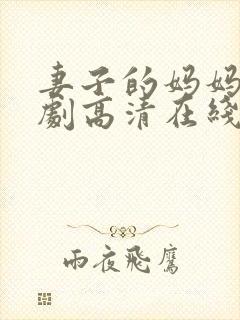 妻子的妈妈
劇高清在綫
雨夜飛鷹